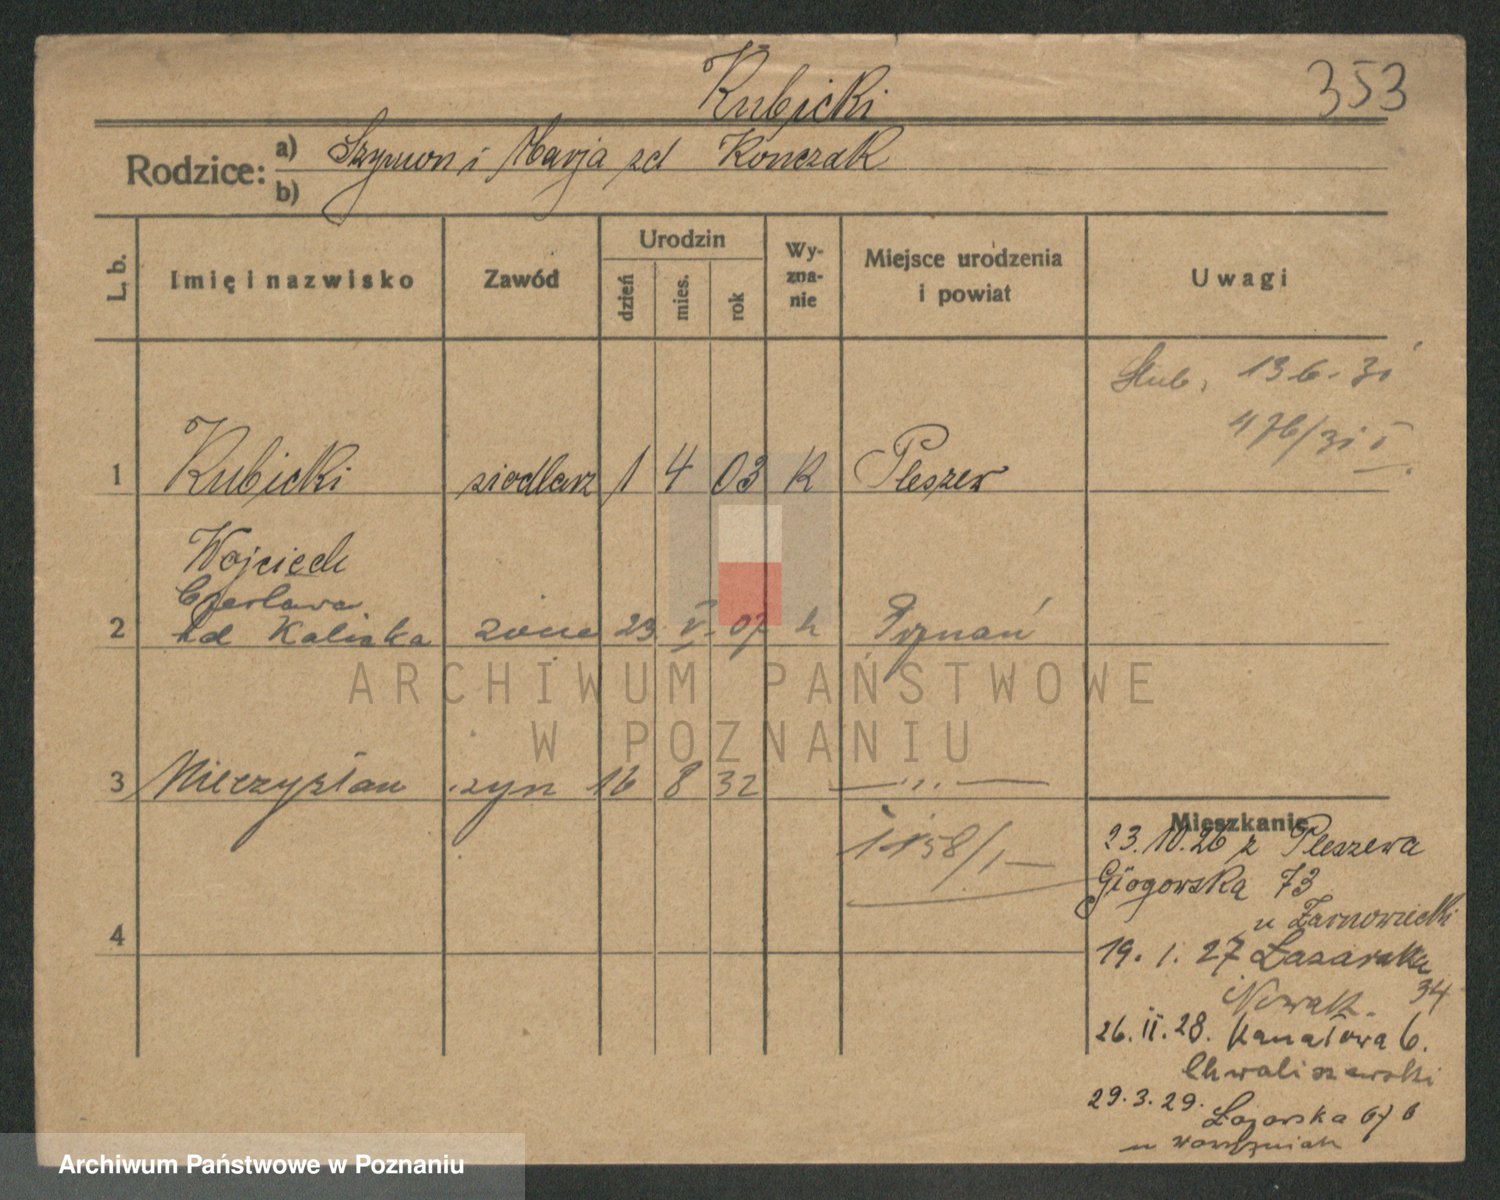 Kubicki
353
Rodzice: a) Szymon i Marja zd Kończak
b)
L. b.
Imię i nazwisko
Zawód
Urodzin
dzień
mies.
rok
Wy-
zna-
nie
Miejsce urodzenia
i powiat
Uwagi
ślub, 13 6. 31
476/31 I
1 Kubicki siodlarz 1 4 03 K Pleszew
Wojciech
Czesława
2 zd Kaliska żona 23 V. 07 k Poznań
ARCHIWUM PAŃSTWOWE
W POZNANIU
3 Mieczysław syn 16 8 32 —„—
1158/I
4
Mieszkanie
23.10.26 z Pleszewa
Głogowska 73
u Żarnowiecki
19. 1. 27 Łazarska
34
Nowak.
26. II. 28. Kanałowa 6.
Chwaliszewski
29. 3. 29. Łazarska
u
Archiwum Państwowe w Poznaniu